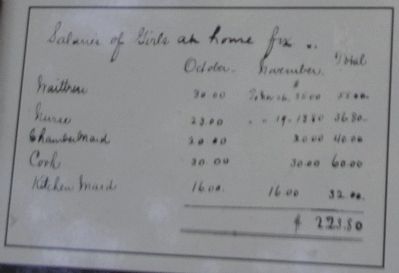 Salaries of Girls at home for
October. November. Total
Waitress 30.00 25.00 55.00
Nurse 23.00 13.80 36.80
Chambermaid 20.00 20.00 40.00
Cook 30.00 30.00 60.00
Kitchen Maid 16.00 16.00 32.00
$ 223.80